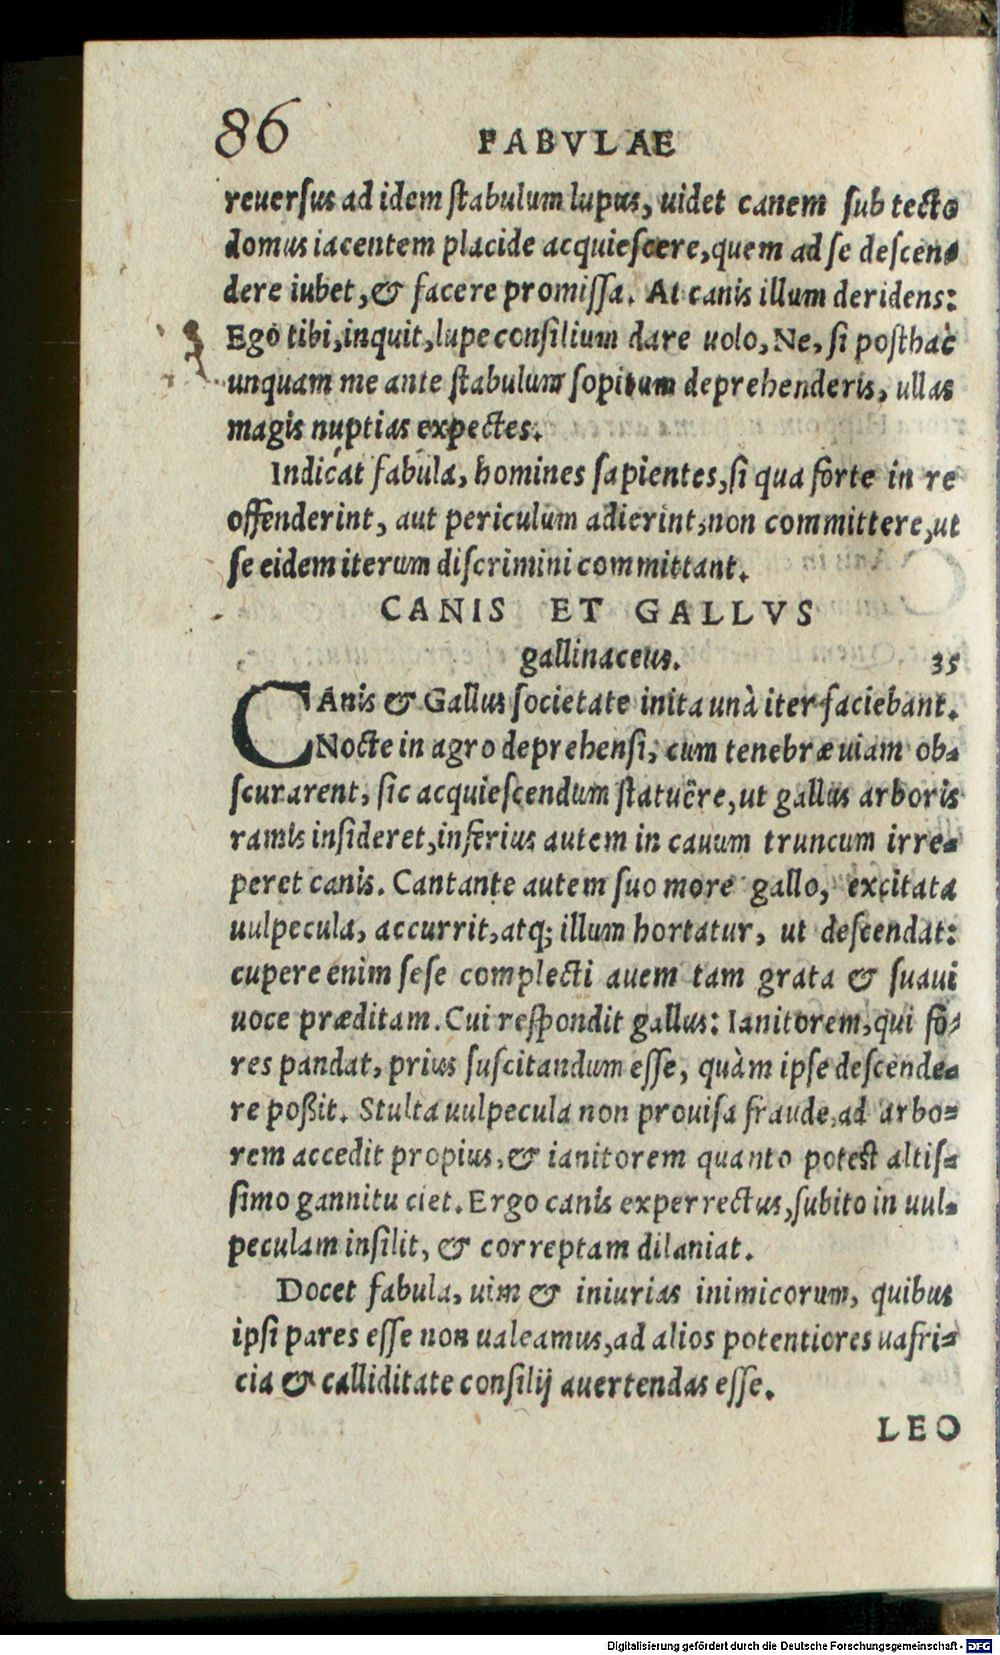 86 FABVLAE
reuerſus ad idem ſtabulum lupus, uidet canem ſub tecto
domus iacentem placide acquieſcere, quem ad ſe deſcen-
dere iubet, & facere promiſſa. At canis illum deridens:
Ego tibi, inquit, lupe conſilium dare uolo, Ne, ſi poſthac
unquam me ante ſtabulum ſopitum deprehenderis, ullas
magis nuptias expectes.
Indicat fabula, homines ſapientes, ſi qua forte in re
offenderint, aut periculum adierint, non committere, ut
ſe eidem iterum diſcrimini committant.
CANIS ET GALLVS
gallinaceus. 35
CAnis & Gallus ſocietate inita unà iter faciebant.
Nocte in agro deprehenſi, cum tenebræ uiam ob-
ſcurarent, ſic acquieſcendum ſtatuêre, ut gallus arboris
ramis inſideret, inferius autem in cauum truncum irre-
peret canis. Cantante autem ſuo more gallo, excitata
uulpecula, accurrit, atq; illum hortatur, ut deſcendat:
cupere enim ſeſe complecti auem tam grata & ſuaui
uoce præditam. Cui reſpondit gallus: Ianitorem, qui fo-
res pandat, prius ſuſcitandum eſſe, quàm ipſe deſcende-
re poßit. Stulta uulpecula non prouiſa fraude, ad arbo-
rem accedit propius, & ianitorem quanto poteſt altiſ-
ſimo gannitu ciet. Ergo canis experrectus, ſubito in uul-
peculam inſilit, & correptam dilaniat.
Docet fabula, uim & iniurias inimicorum, quibus
ipſi pares eſſe non ualeamus, ad alios potentiores uafri-
cia & calliditate conſilij auertendas eſſe.
LEO
Digitalisierung gefördert durch die Deutsche Forschungsgemeinschaft - DFG